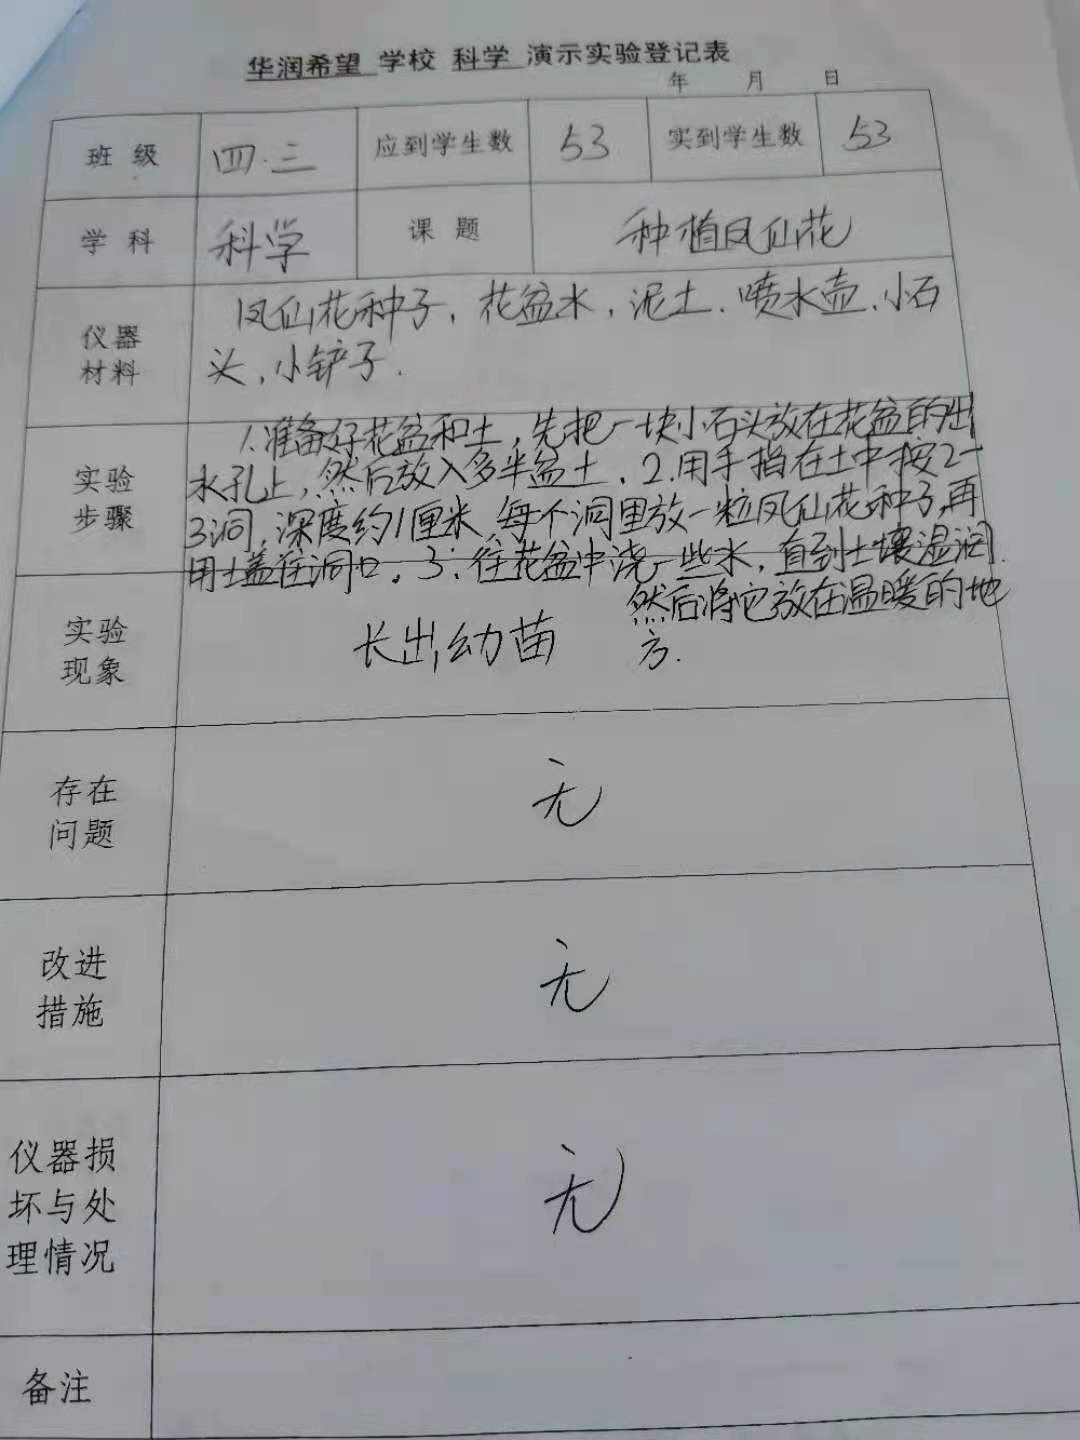 华润希望 学校 科学 演示实验登记表
年 月 日
班级 四.三 应到学生数 53 实到学生数 53
学科 科学 课题 种植凤仙花
仪器材料
凤仙花种子，花盆水，泥土．喷水壶、小石
头，小铲子．
实验步骤
1.准备好花盆和土，先把一块小石头放在花盆的出
水孔上，然后放入多半盆土．2.用手指在土中按2-
3洞，深度约1厘米，每个洞里放一粒凤仙花种子，再
用土盖住洞口。3：往花盆中浇一些水，直到土壤湿润．
然后将它放在温暖的地
方．
实验现象
长出幼苗
存在问题
无
改进措施
无
仪器损坏与处理情况
无
备注